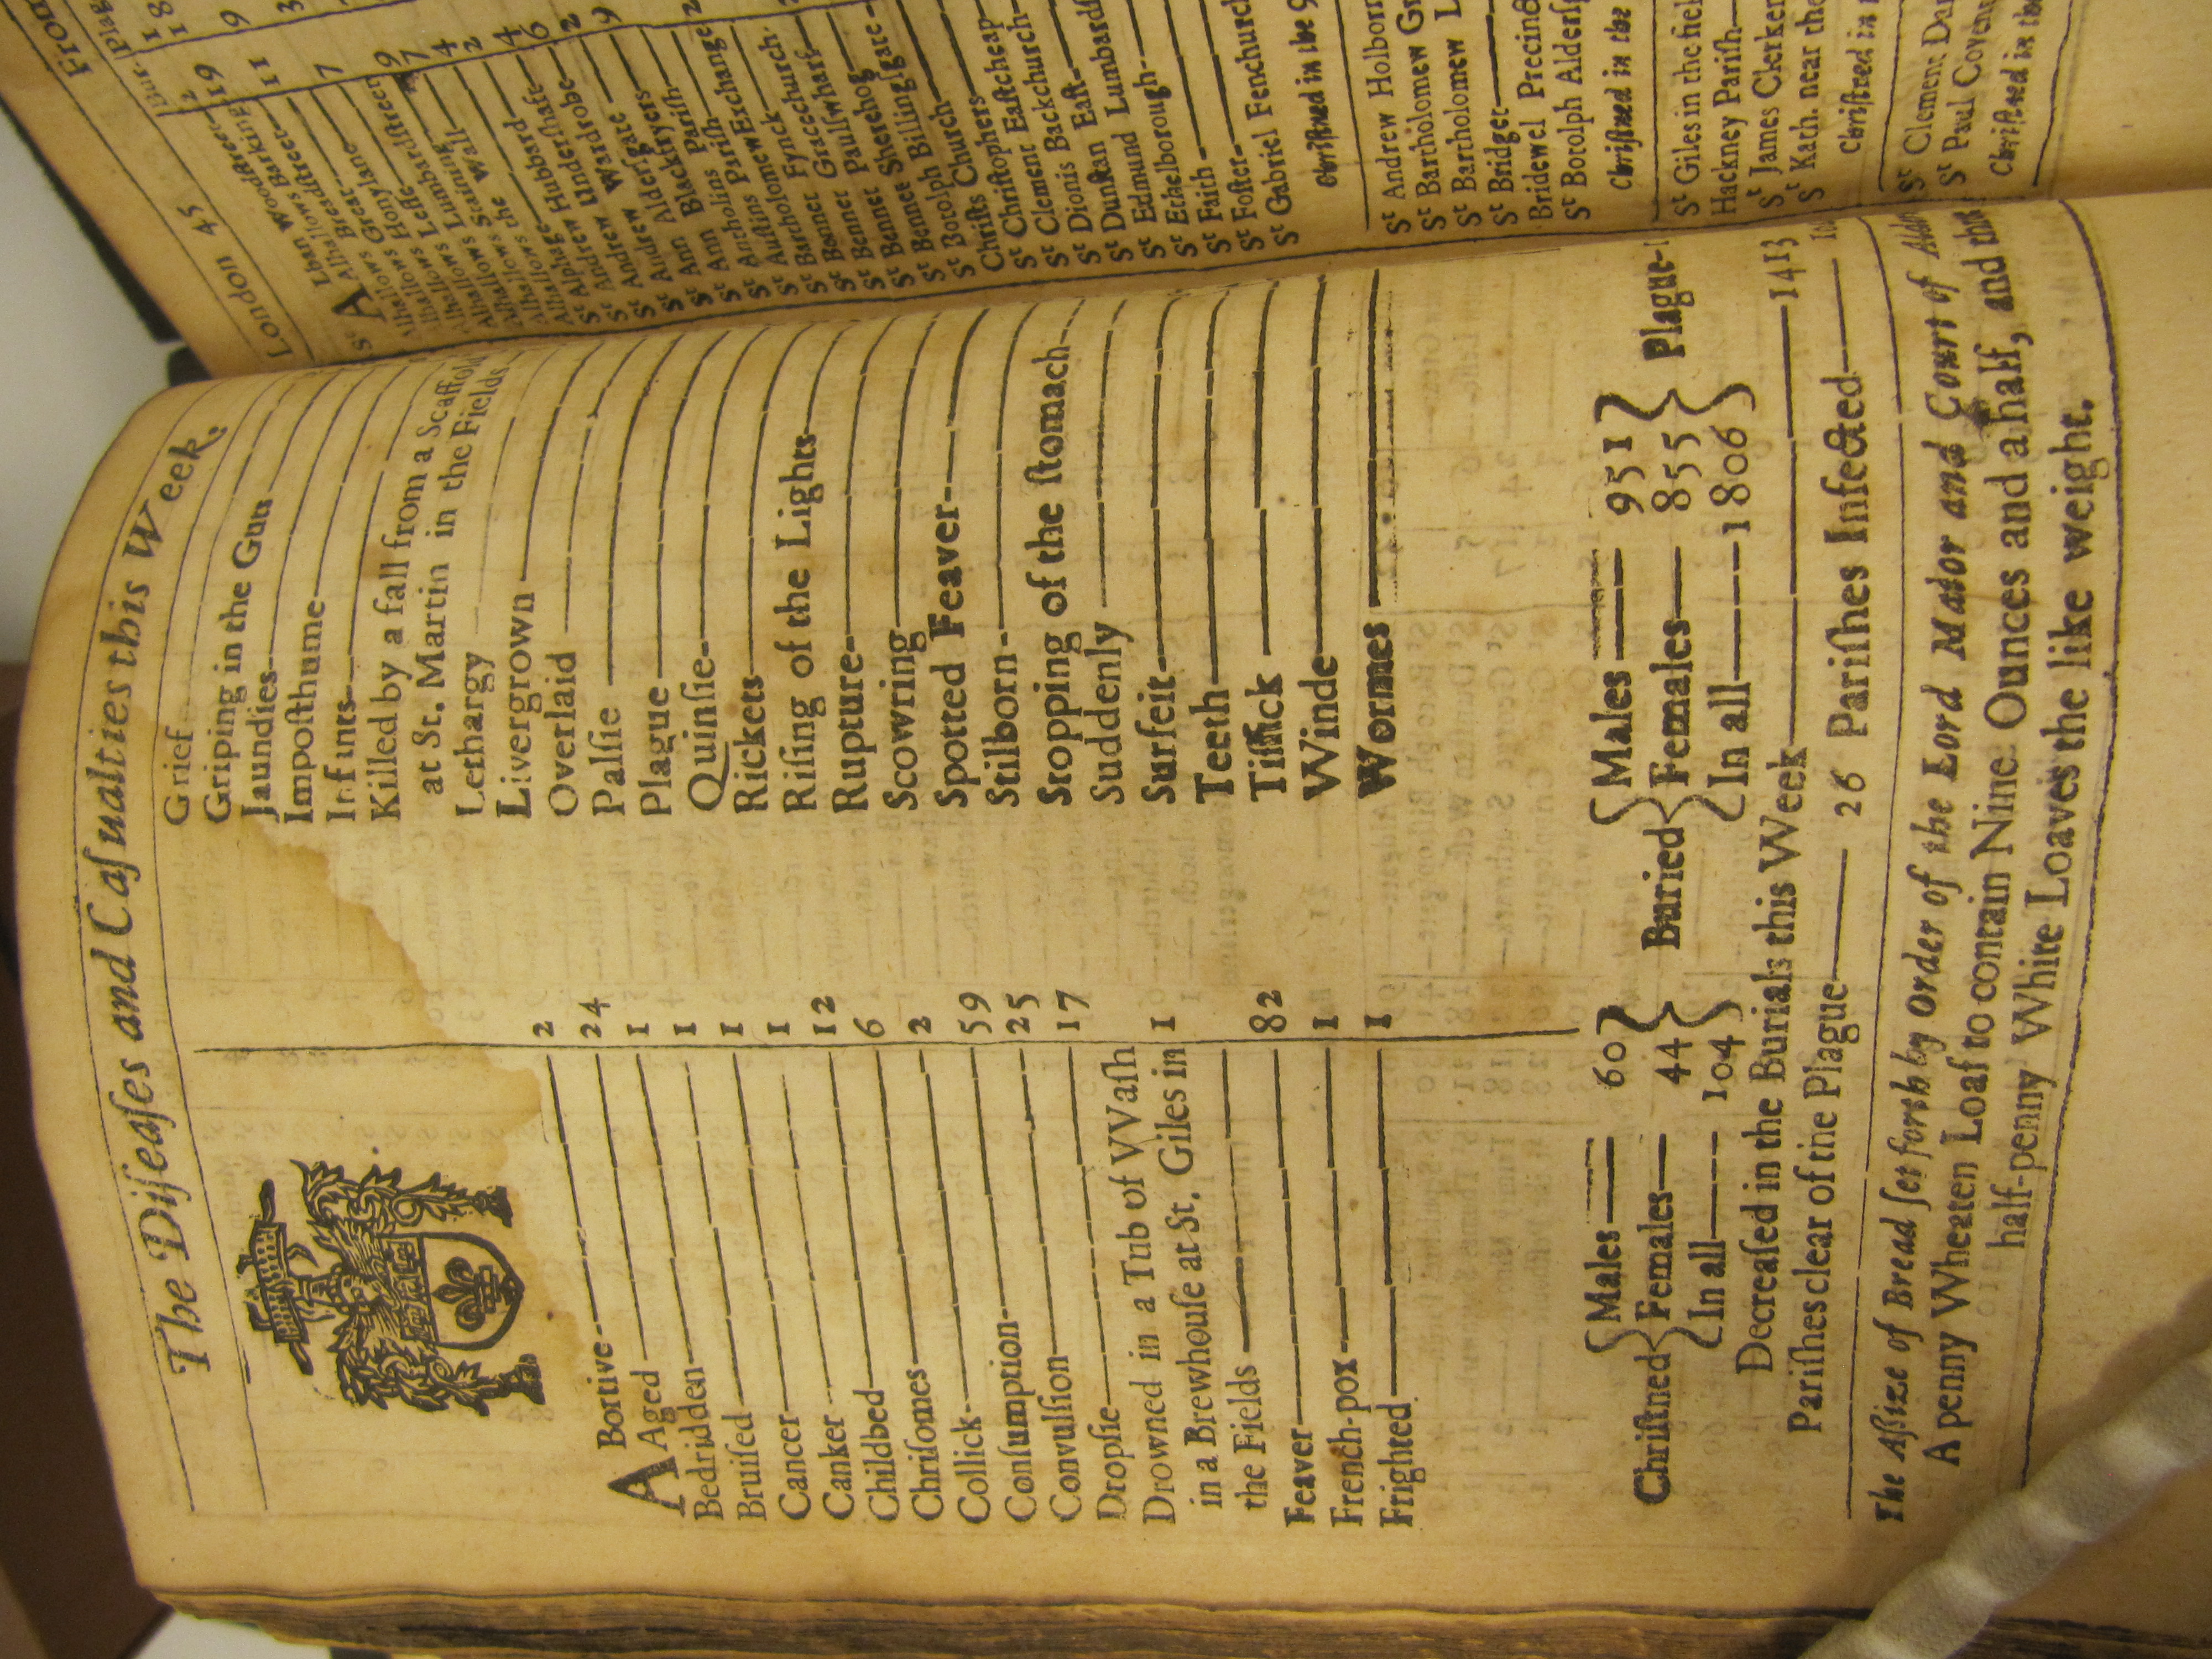 The Diſeaſes and Caſualties this Week.
ABortive 2
Aged 24
Bedridden 1
Bruiſed 1
Cancer 1
Canker 1
Childbed 12
Chriſomes 6
Collick 2
Conſumption 59
Convulſion 25
Dropſie 17
Drowned in a Tub of VVaſh
in a Brewhouſe at St. Giles in
the Fields 1
Feaver 82
French-pox 1
Frighted 1
Grief
Griping in the Guts
Jaundies
Impoſthume
Infants
Killed by a fall from a Scaffold
at St. Martin in the Fields
Lethargy
Livergrown
Overlaid
Palſie
Plague
Quinſie
Rickets
Riſing of the Lights
Rupture
Scowring
Spotted Feaver
Stilborn
Stopping of the ſtomach
Suddenly
Surfeit
Teeth
Tiſſick
Winde
Wormes
Chriſtned { Males 60 Females 44 In all 104 }
Buried { Males 951 Females 855 In all 1806 } Plague
Decreaſed in the Burials this Week 1413
Pariſhes clear of the Plague 26 Pariſhes Infected
The Aſſize of Bread ſet forth by Order of the Lord Maior and Court of
A penny Wheaten Loaf to contain Nine Ounces and a half, and
half-penny White Loaves the like weight.
London 45
St ALban Woodſtreet
Alhallows Barking
Alhallows Breadſtreet
Alhallows Great
Alhallows Honylane
Alhallows Leſſe
Alhallows Lumbardſtreet
Alhallows Staining
Alhallows the Wall
St Alphage
St Andrew Hubbard
St Andrew Underſhaft
St Andrew Wardrobe
St Ann Alderſgate
St Ann Blackfryers
St Antholins Pariſh
St Auſtins Pariſh
St Bartholomew Exchange
St Bennet Fynck
St Bennet Gracechurch
St Bennet Paulſwharf
St Bennet Sherehog
St Botolph Billingſgate
Chriſts Church
St Chriſtophers
St Clement Eaſtcheap
St Dionis Backchurch
St Dunſtan Eaſt
St Edmund Lumbard
St Ethelborough
St Faith
St Foſter
St Gabriel Fenchurch
Chriſtned in the
St Andrew Holborn
St Bartholomew
St Bartholomew
St Bridget
Bridewel Precinct
St Botolph
Chriſtned in the
St Giles in the
Hackney Pariſh
St James
St Kath. near the
Chriſtned in
St Clement
St Paul
Chriſtned in the